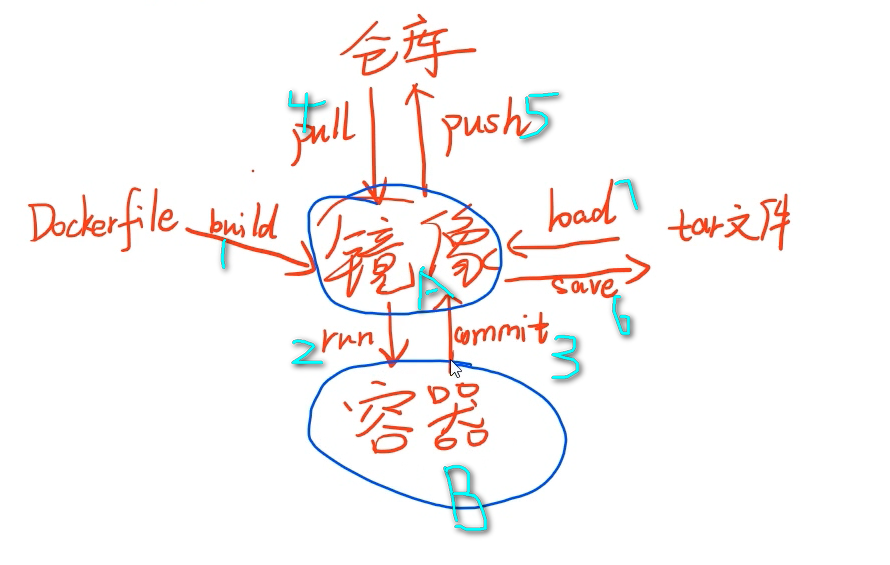 仓库
4 pull push 5
Dockerfile build 1
镜像 A
load 7 tar文件
save 6
2 run commit 3
容器
B